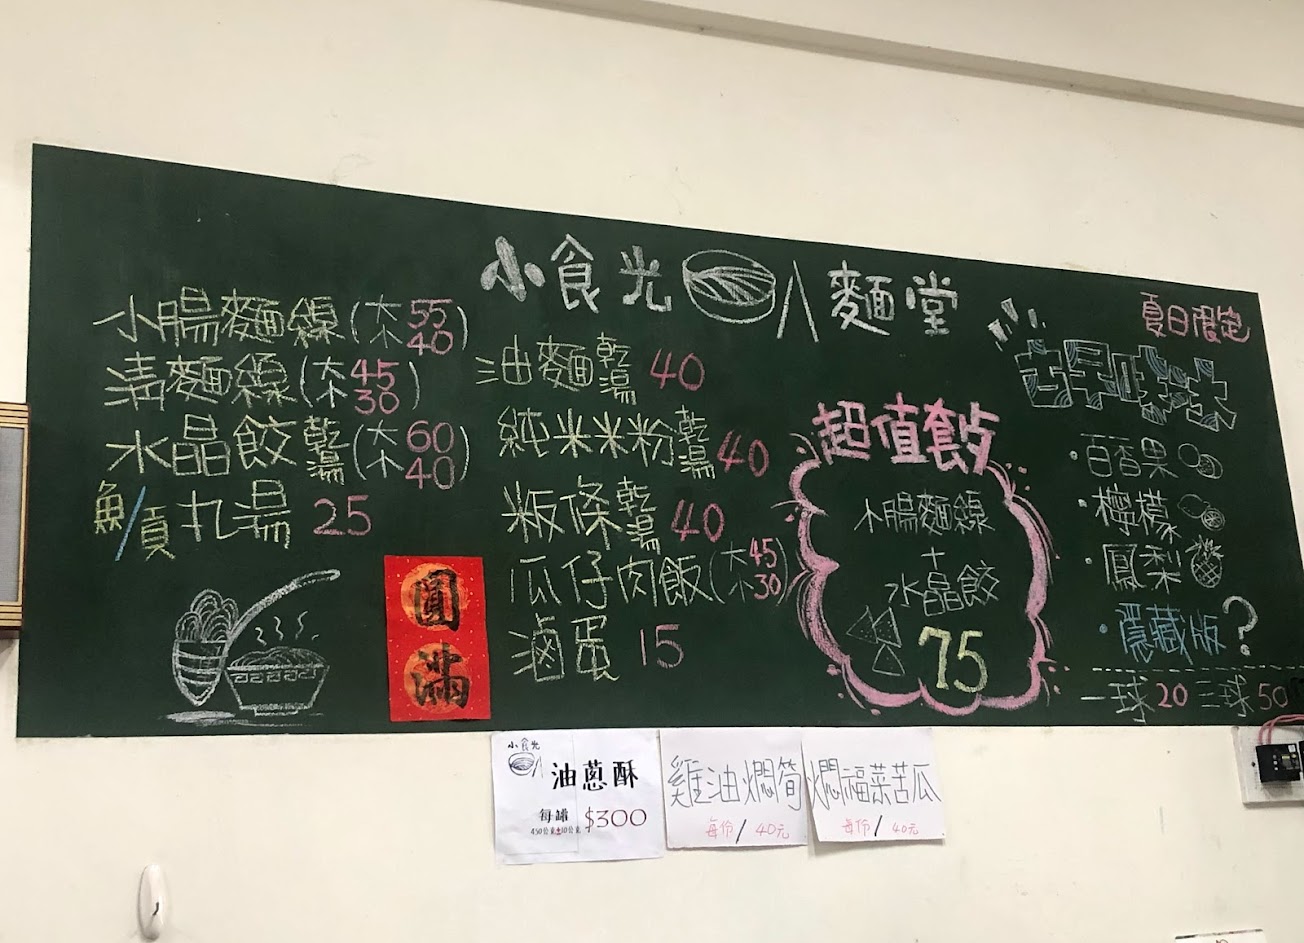 小食光 麵堂
小腸麵線(大55 小40)
清麵線(大45 小30)
水晶餃 乾湯(大60 小40)
魚/貢丸湯 25
圓滿
油麵 乾湯 40
純米米粉 乾湯 40
粄條 乾湯 40
瓜仔肉飯(大45 小30)
滷蛋 15
超值套餐
小腸麵線
+
水晶餃
75
夏日限定
•百香果
•檸檬
•鳳梨
•隱藏版?
一球20 三球50
小食光
油蔥酥
每罐 $300
雞油燜筍
每份/40元
燜福菜苦瓜
每份/40元